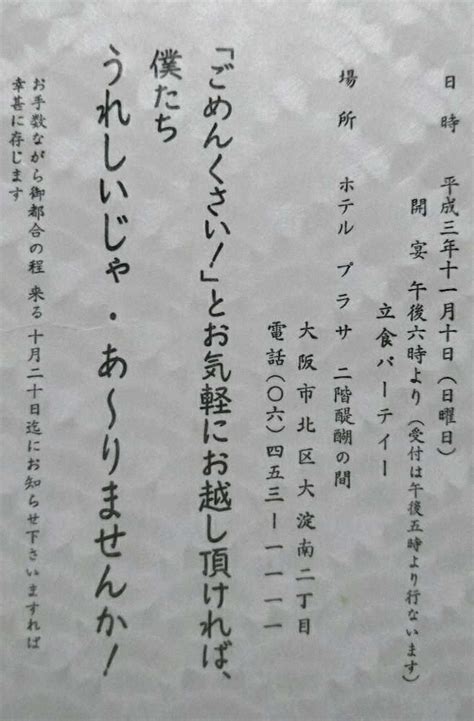 日時　平成三年十一月十日（日曜日）
開宴　午後六時より（受付は午後五時より行ないます）
立食パーティー
場所　ホテル プラザ 二階醍醐の間
大阪市北区大淀南二丁目
電話（〇六）四五三ー一一一一
「ごめんくさい！」とお気軽にお越し頂ければ、
僕たち
うれしいじゃ・あ〜りませんか！
お手数ながら御都合の程 来る 十月二十日迄にお知らせ下さいますれば
幸甚に存じます